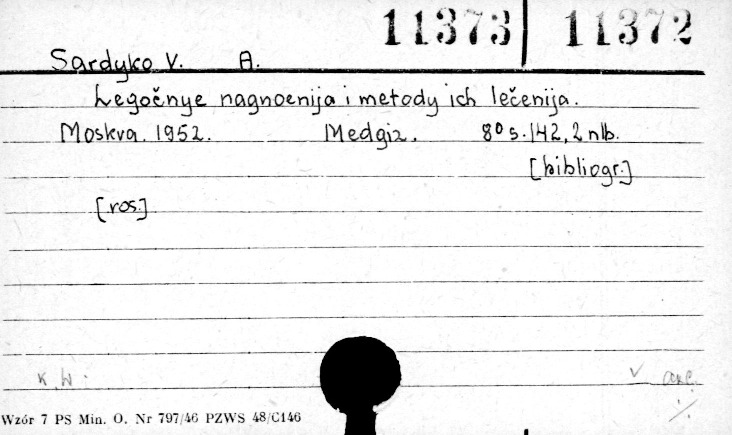 11373 11372
Sardyko V. A.
Legočnye nagnoenija i metody ich lečenija.
Moskva. 1952. Medgiz. 8° s. 142, 2 nlb.
[bibliogr.]
[ros.]
K. W.
Wzór 7 PS Min. O. Nr 797/46 PZWS 48/C146